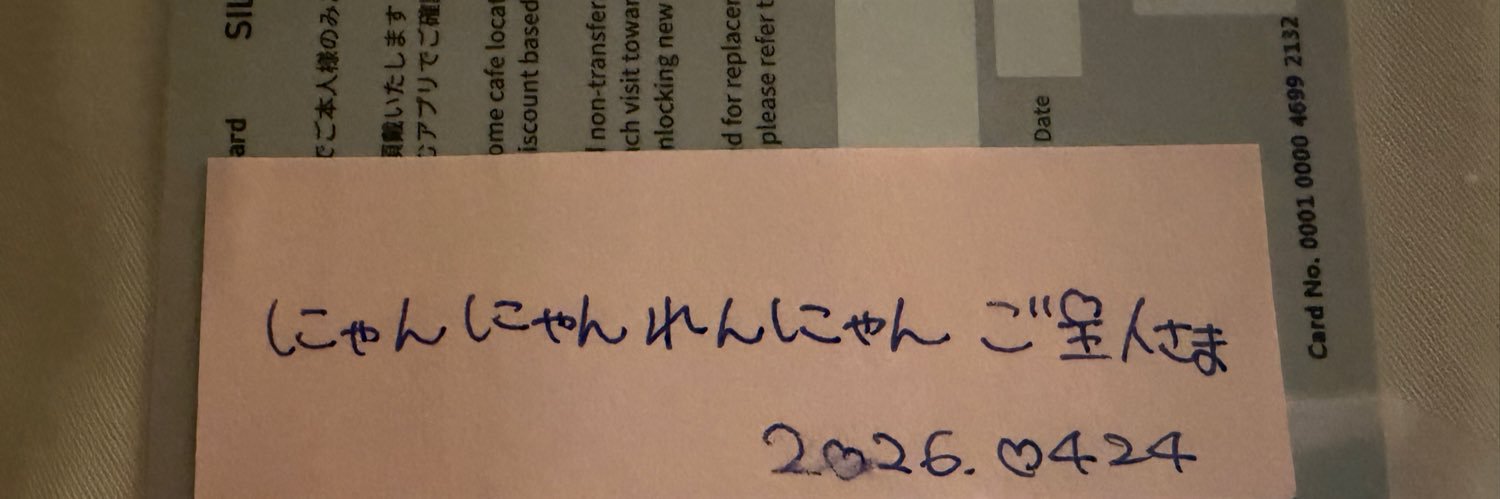 ard SIL
でご本人様のみ
頂戴いたします
アプリでご確
ome cafe locat
iscount based
non-transfer
ch visit towar
nlocking new
d for replacem
please refer t
Date
Card No. 0001 0000 4699 2132
にゃんにゃんれんにゃん ご主人さま
2♡26.♡424